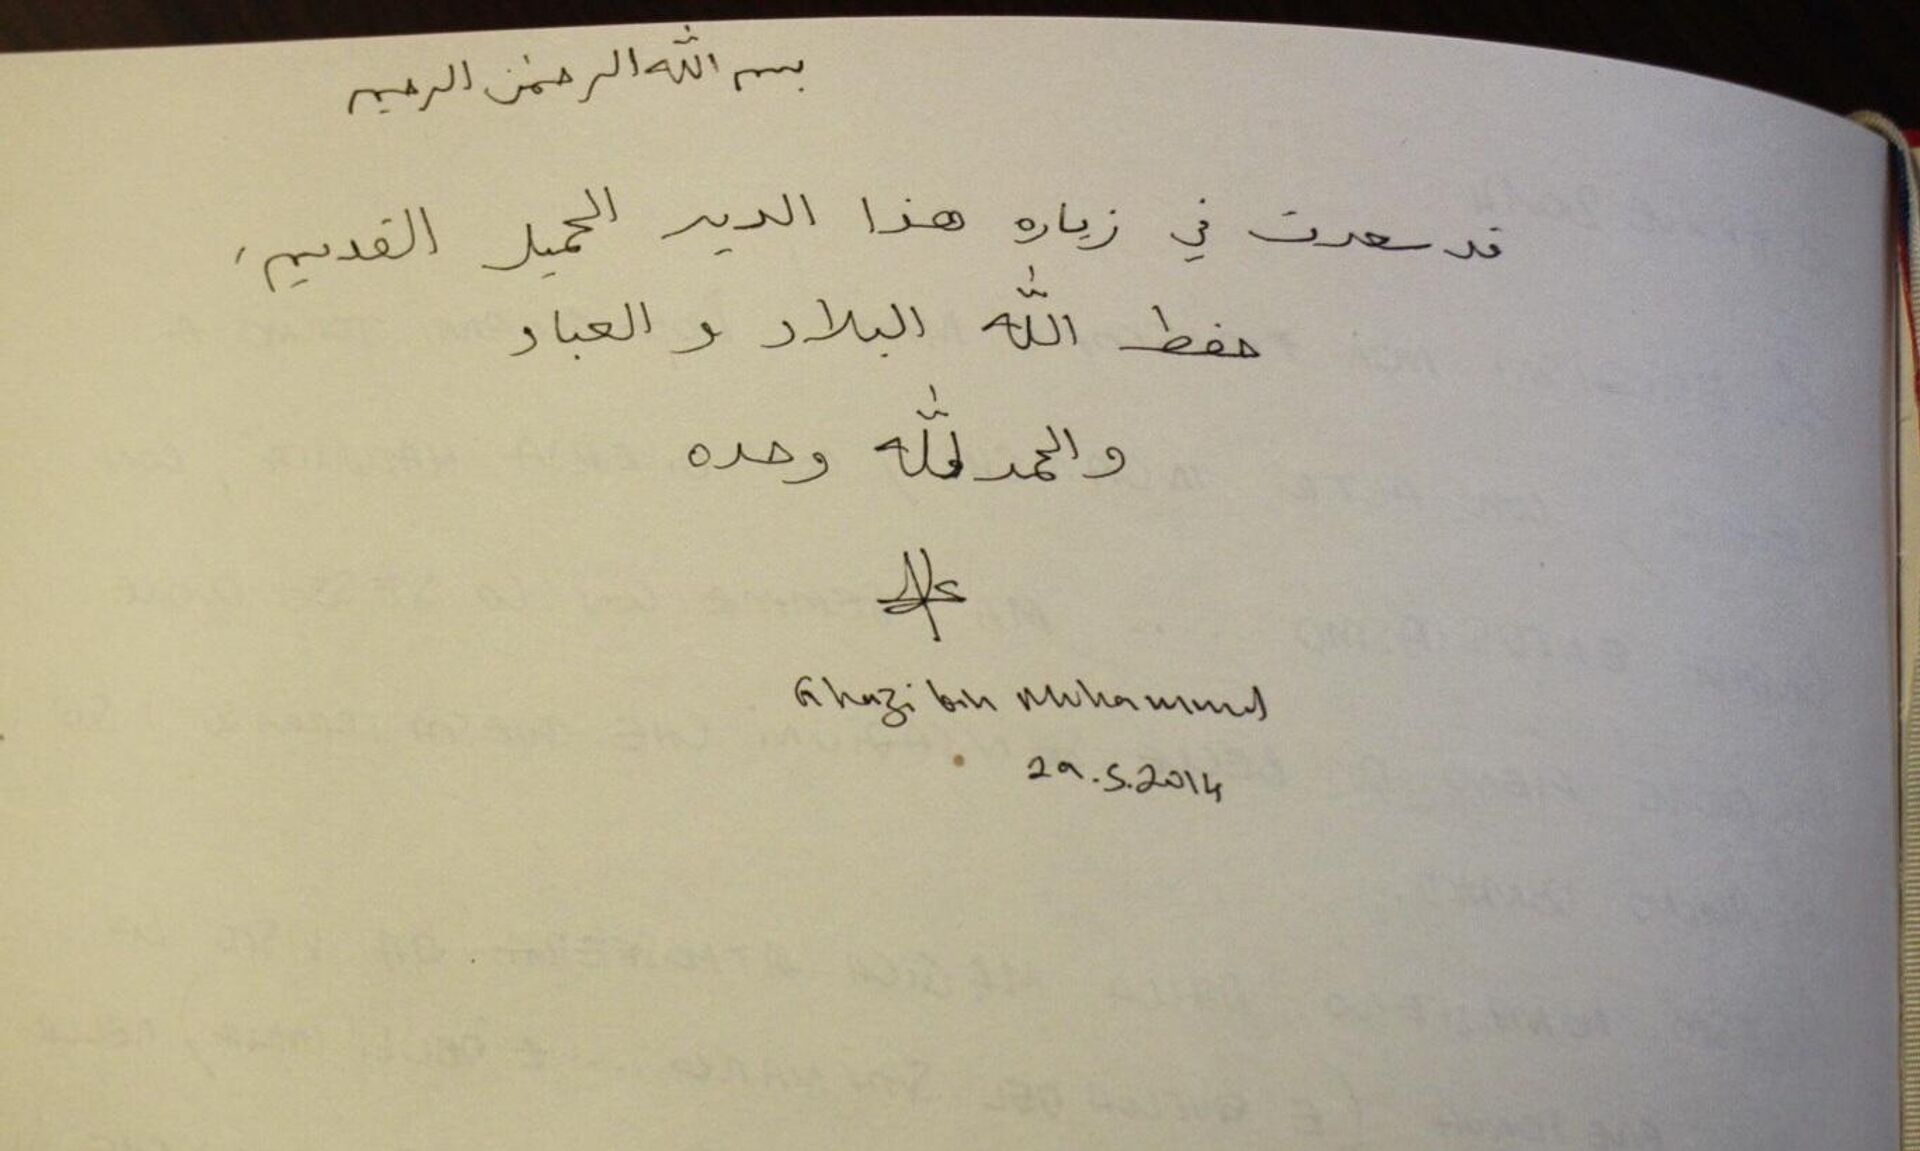 بسم الله الرحمن الرحيم
قد سعدت في زياره هذا الدير الجميل القديم،
حفظ الله البلاد و العباد
والحمد لله وحده
Ghazi bin Muhammad
29.5.2014